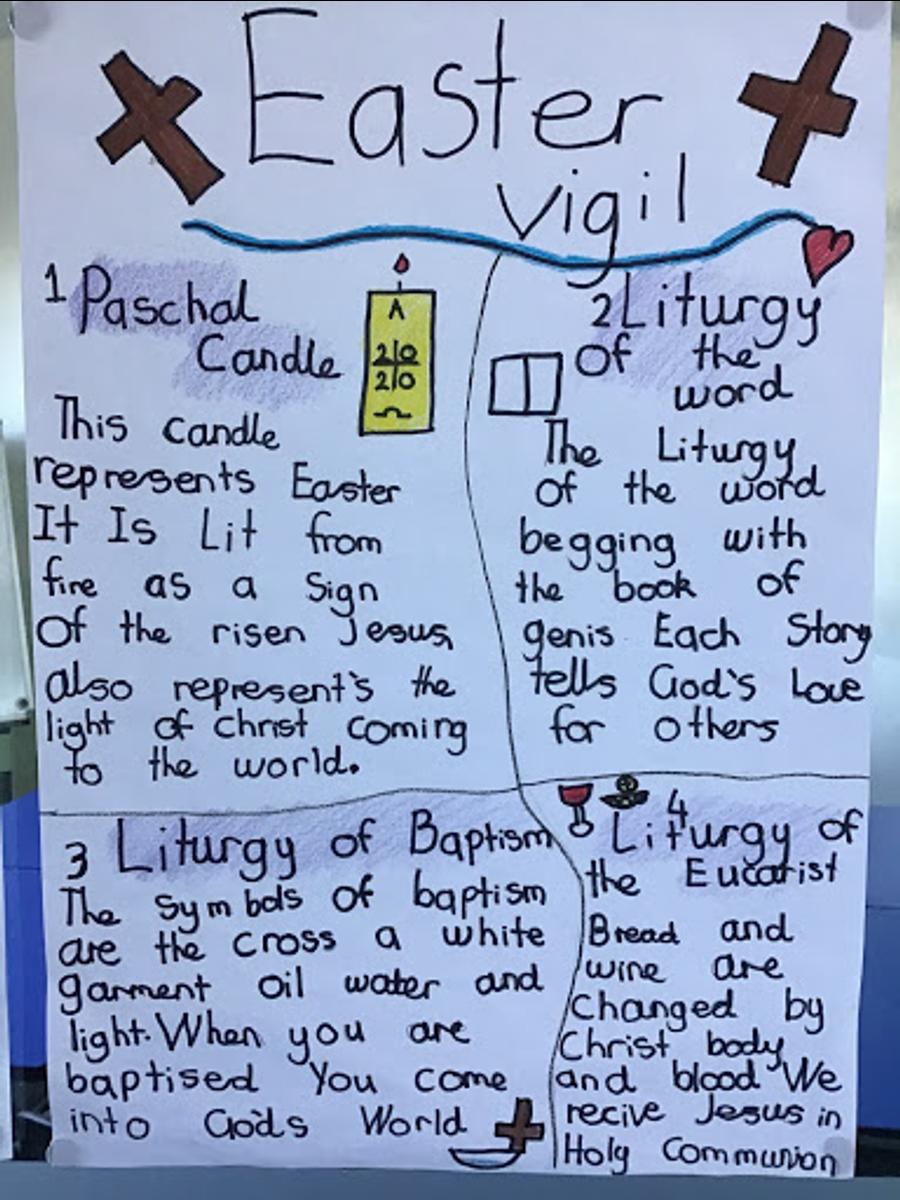 Easter
vigil
1 Paschal
Candle
Λ
2|0
2|0
Ω
This candle
represents Easter
It Is Lit from
fire as a Sign
Of the risen Jesus,
also represent's the
light of Christ coming
to the world.
2 Liturgy
Of the
word
The Liturgy
Of the word
begging with
the book of
genis Each Story
tells God's Love
for others
3 Liturgy of Baptism
The Symbols Of baptism
are the cross a white
garment oil water and
light. When you are
baptised You come
into God's World
4
Liturgy of
the Eucarist
Bread and
wine are
Changed by
Christ body
and blood We
recive Jesus in
Holy Communion